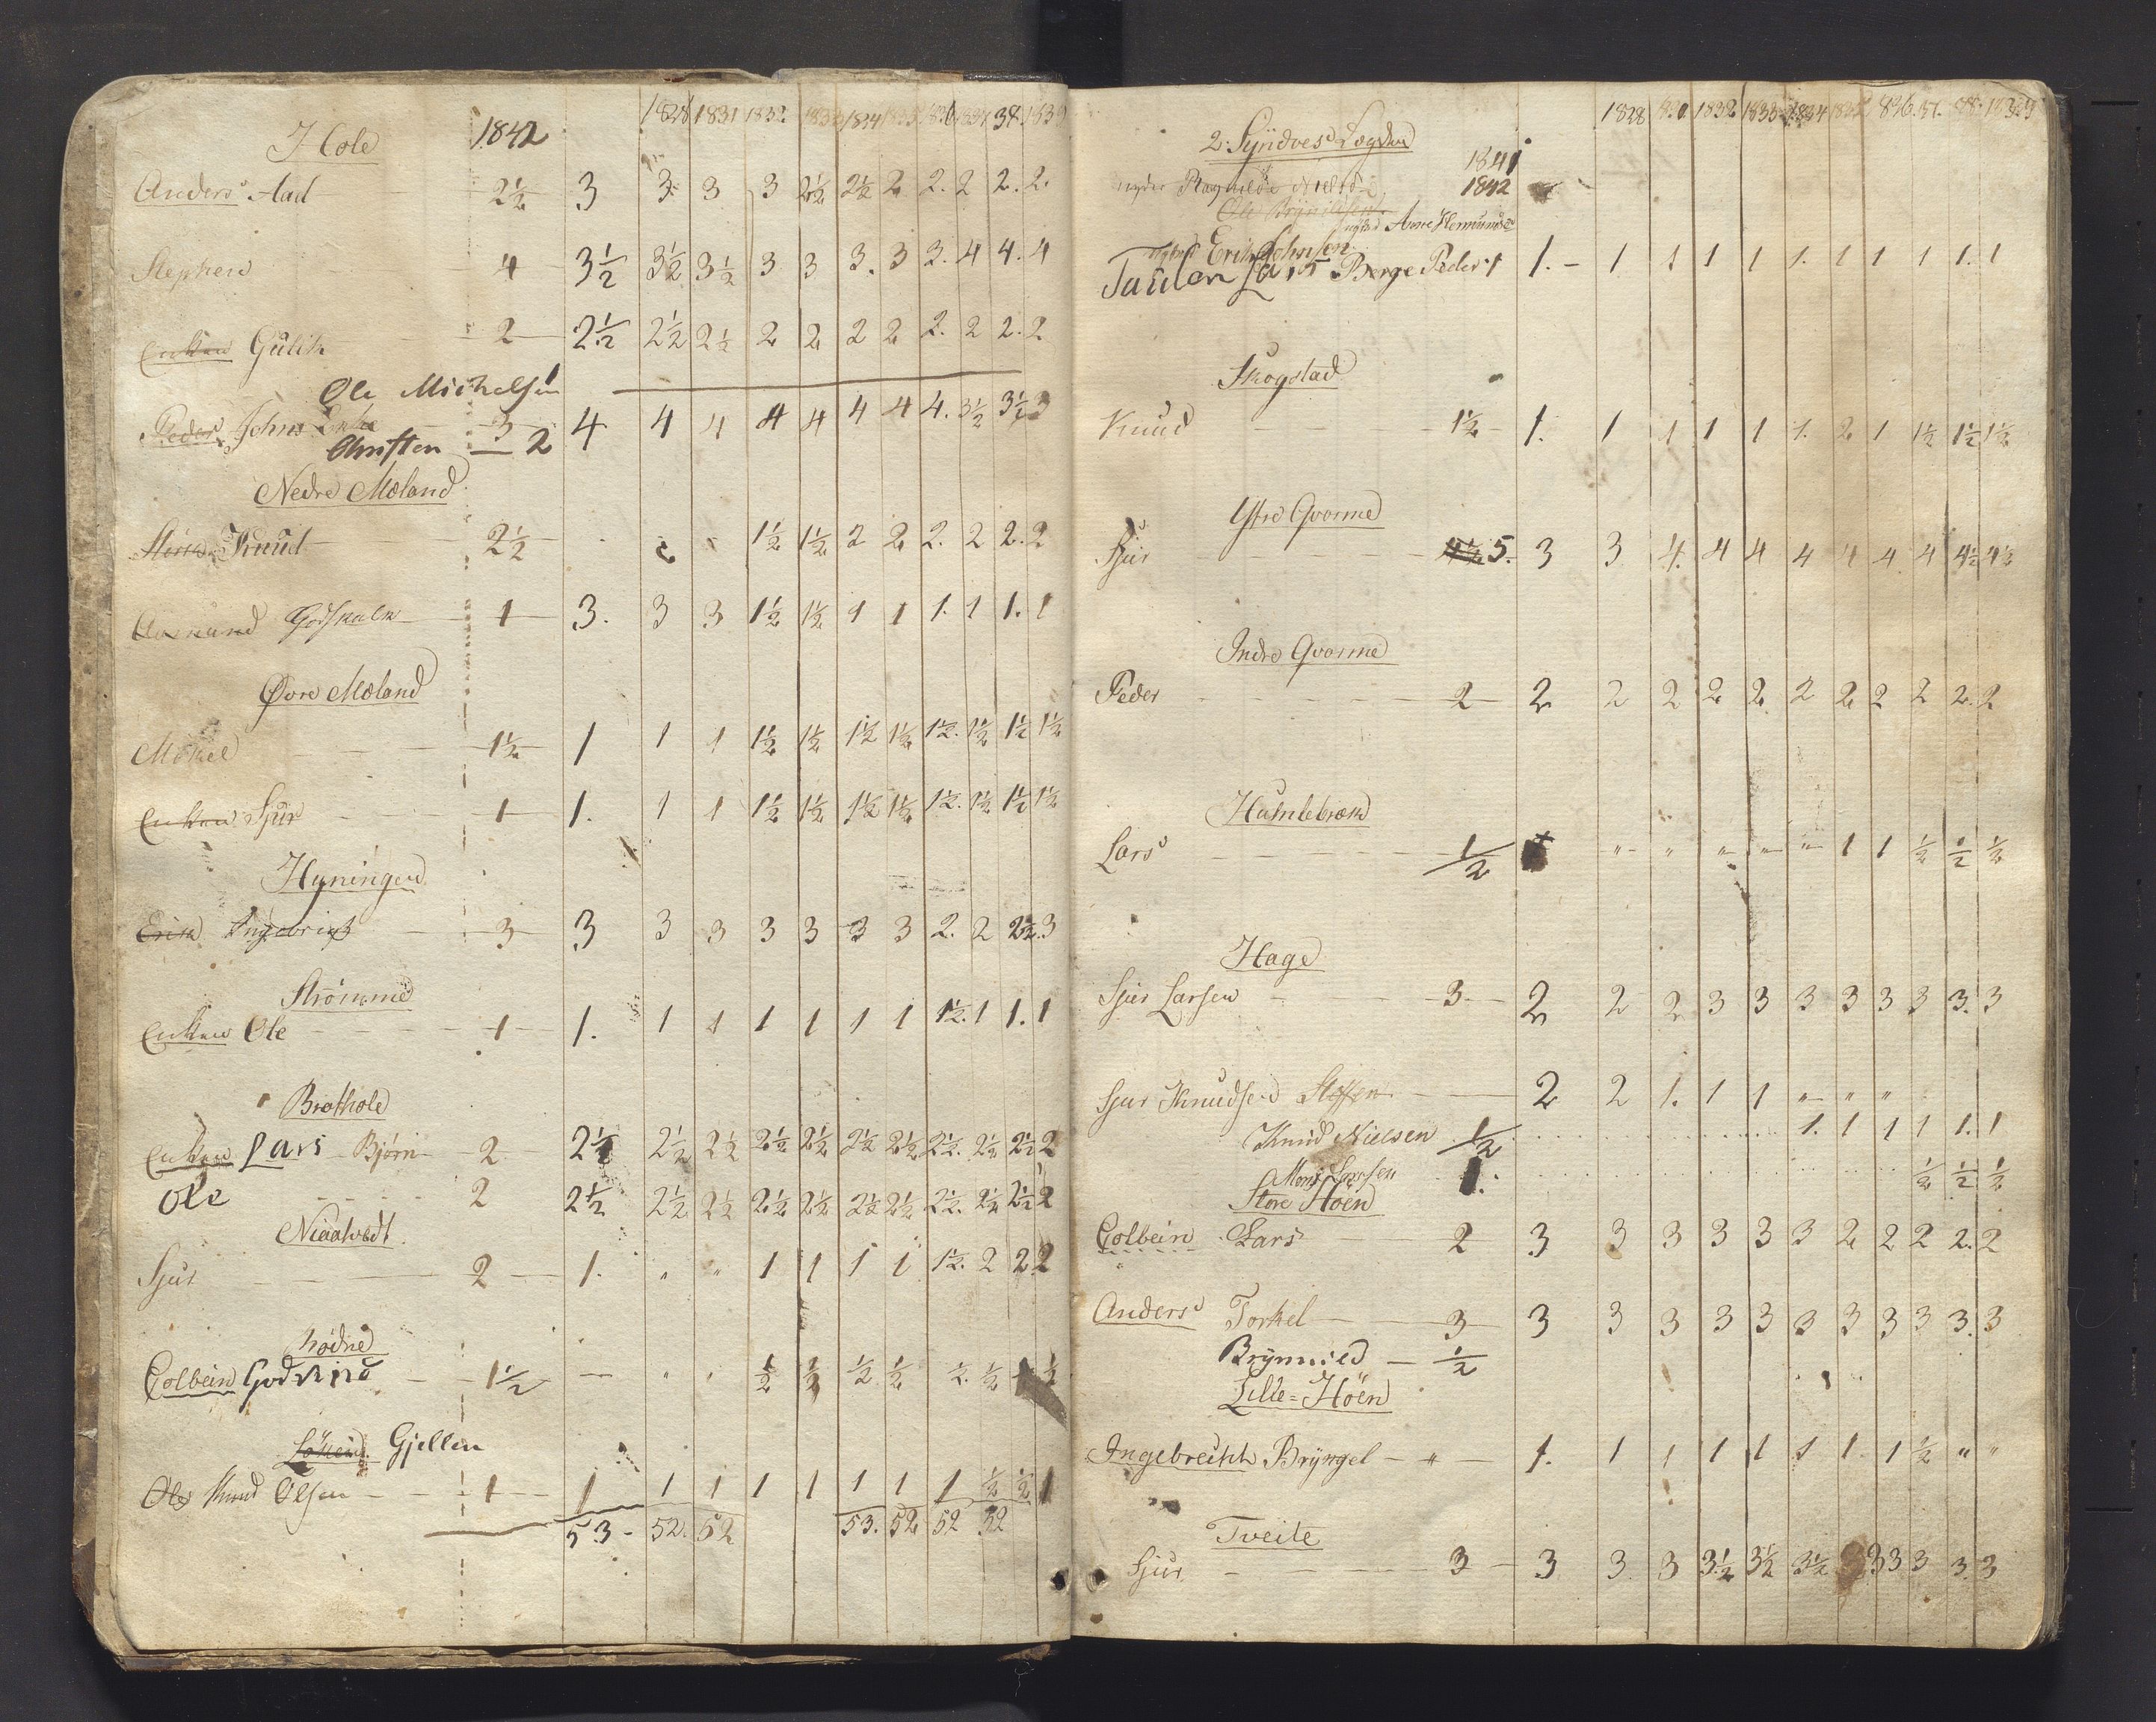 Hole 1842 1828 1831 1832 1833 1834 1835 1836 1837 38. 1839
Anders Aad 2½ 3 3 3 3 2½ 2½ 2 2. 2 2. 2.
Stephen 4 3½ 3½ 3½ 3 3 3. 3 3. 4 4. 4
Enken Gulik 2 2½ 2½ 2½ 2 2 2 2 2. 2 2. 2
Ole Michelsen 1
Peder Johns Enke 3 4 4 4 4 4 4 4 4. 3½ 3½ 3
Christen — 2
Nedre Mæland
Knud 2½ 1½ 1½ 2 2 2. 2 2. 2
Amund Godskalk 1 3. 3 3 1½ 1½ 1 1 1. 1 1. 1
Øvre Mæland
Mikel 1½ 1 1 1 1½ 1½ 1½ 1½ 1½. 1½ 1½ 1½
Enken Sjur 1 1. 1 1 1½ 1½ 1½ 1½ 1½. 1½ 1½ 1½
Hyningen
Erik Ingebrigt 3 3 3 3 3 3 3 3 2. 2 2½. 3
Strømme
Enken Ole 1 1. 1 1 1 1 1 1 1½. 1 1. 1
Brathole
Enken Lars Bjørn 2 2½ 2½ 2½ 2½ 2½ 2½ 2½ 2½. 2½ 2½ 2
Ole 2 2½ 2½ 2½ 2½ 2½ 2½ 2½ 2½. 2½ 2½ 2
Niaatvedt
Sjur 2 1. " " 1 1 1 1 1½. 2 2 2
Rødne
Colbein Godskid 1½ — " " ½ ½ ½ ½ ½. ½ ½
Gjellen
Ole Knud Olsen 1 1 1 1 1 1 1 1 1 ½ ½ 1
53 - 52. 52 53. 52 52 52
2. Syndves Lægden 1828 1832 1833 1834 836. 37. 38. 1839
1841
nyder Ragnilde Nielsd. 1842
Ole Brynildsen
nyder Anne Hermunds
nyder Erik Johnsen
Taulen Lars Berge Peder 1 1. - 1 1 1 1 1. 1 1 1 1. 1
Skogstad
Knud 1½ 1. 1 1 1 1 1. 2 1 1½ 1½ 1½
Ytre Qvarme
Sjur 4½ 5. 3 3 4. 4 4 4 4 4 4 4½ 4½
Indre Qvarme
Peder 2 2 2 2 2 2 2 2 2 2 2. 2
Humlebræk
Lars ½ " " " " " 1 1 ½ ½ ½
Hage
Sjur Larsen 3 2 2 2 3 3 3 3 3 3 3. 3
Sjur Knudsen Steffen 2 2 1. 1 1 " " "
Knud Nielsen ½ 1. 1 1 1 1. 1
Mons Larsen 1. ½ ½ ½
Store Höen
Colbein Lars 2 3 3 3 3 3 3 2 2 2 2. 2
Anders Torkel 3 3 3 3 3 3 3 3 3 3 3. 3
Brynnild — ½
Lille=Höen
Ingebrecth Bryngel - " - 1. 1 1 1 1 1 1. 1 ½ " "
Tveite
Sjur 3 3 3. 3 3½ 3½ 3½ 3 3 3 3. 3